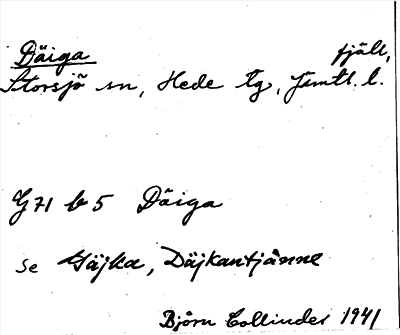 Däiga fjäll,
Storsjö sn, Hede tg, Jämtl. l.
G 71 b 5 Däiga
se Gäjka, Däjkantjånne
Björn Collinder 1941